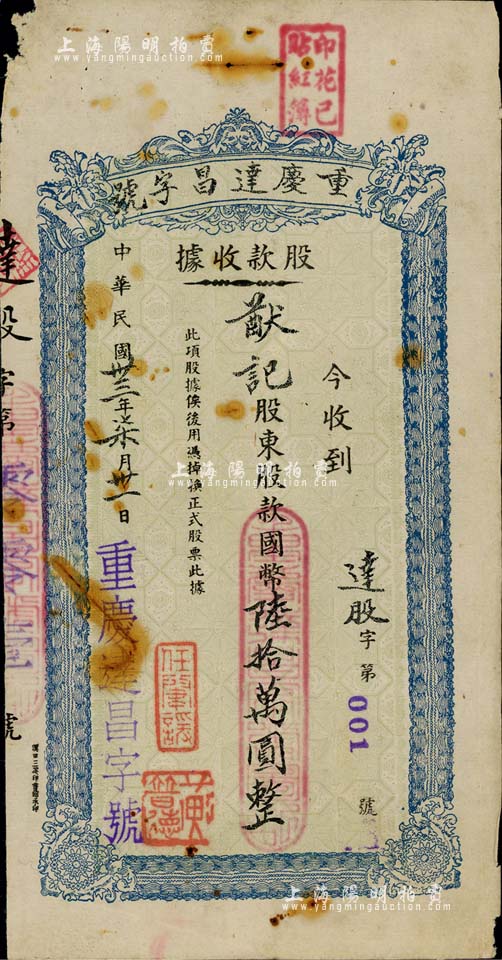 上海陽明拍賣
www.yangmingauction.com
印花已
貼紅簿
重慶達昌字號
股款收據
今收到
猷記股東股款國幣陸拾萬圓整
達股字第001號
此項股據俟後用憑掉換正式股票此據
中華民國卅三年柒月卅一日
重慶達昌字號
達股字第
號
上海陽明拍賣
www.yangmingauction.com
上海陽明拍賣
www.yangmingauction.com